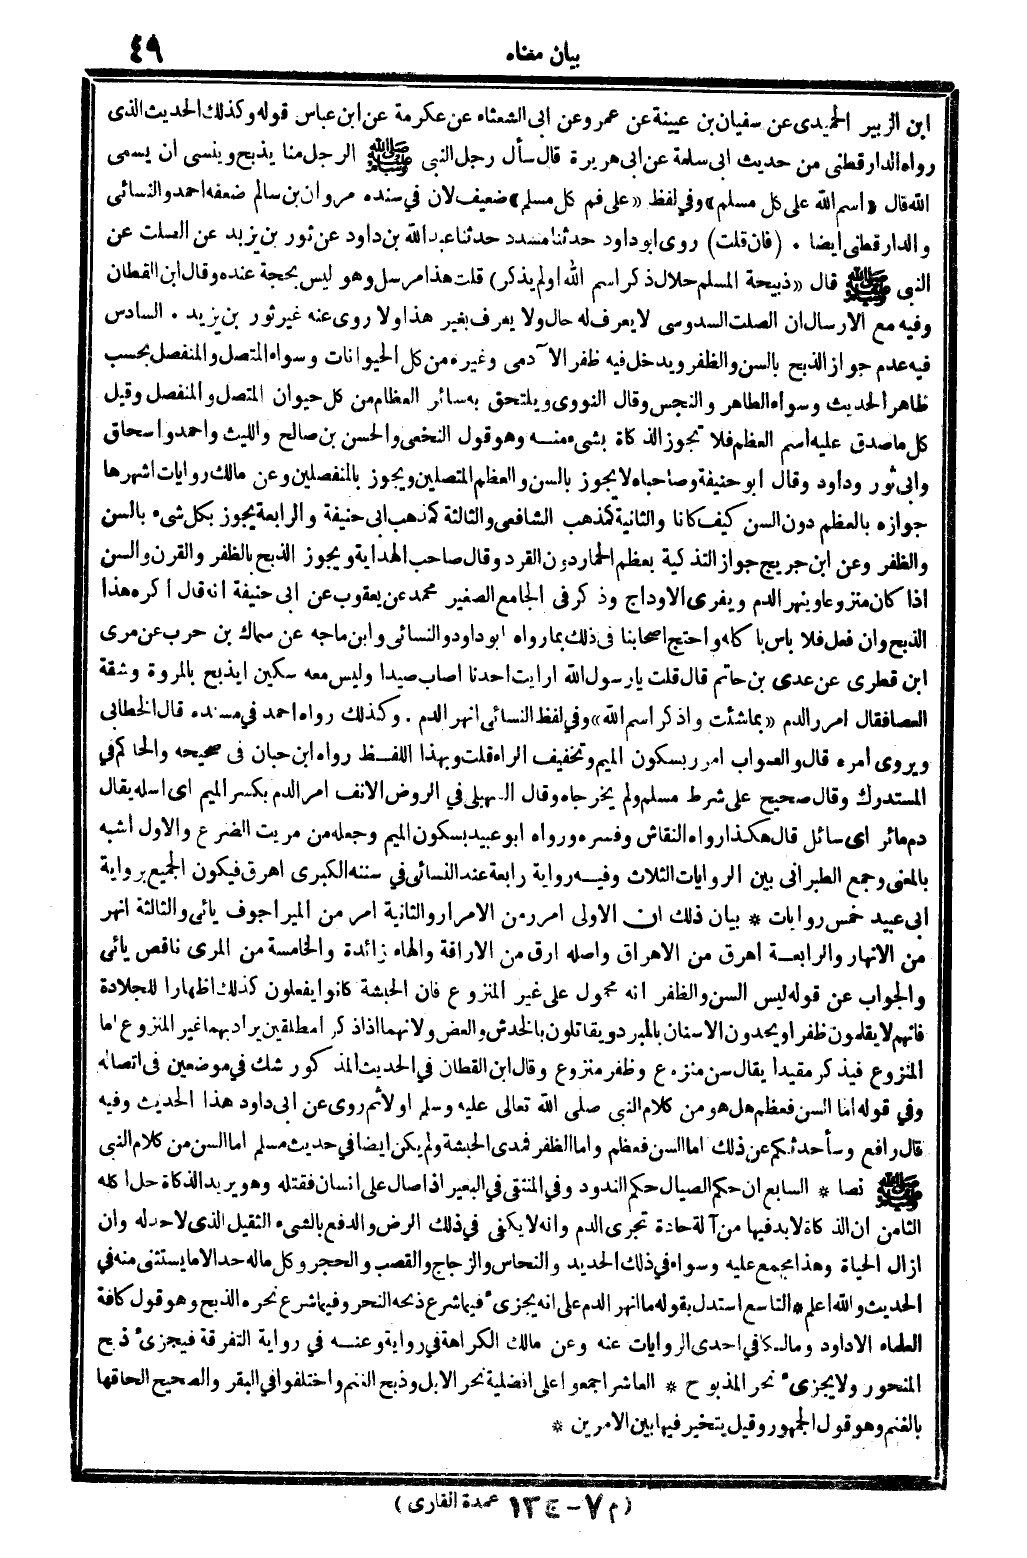 بيان معناه
٤٩
ابن الزبير الحميدى عن سفيان بن عيينة عن عمرو عن ابى الشعثاء عن عكرمة عن ابن عباس قوله وكذلك الحديث الذى
رواه الدارقطنى من حديث ابى سلمة عن ابى هريرة قال سأل رجل النبى ﷺ الرجل منا يذبح وينسى ان يسمى
الله قال «اسم الله على كل مسلم» وفي لفظ «على فم كل مسلم» ضعيف لان في سنده مروان بن سالم ضعفه احمد والنسائى
والدارقطنى ايضا . (فان قلت) روى ابو داود حدثنا مسدد حدثنا عبد الله بن داود عن ثور بن يزيد عن الصلت عن
النبى ﷺ قال «ذبيحة المسلم حلال ذكر اسم الله او لم يذكر) قلت هذا مرسل وهو ليس بحجة عنده وقال ابن القطان
وفيه مع الارسال ان الصلت السدوسى لا يعرف له حال ولا يعرف بغير هذا ولا روى عنه غير ثور بن يزيد . السادس
فيه عدم جواز الذبح بالسن والظفر ويدخل فيه ظفر الآدمى وغيره من كل الحيوانات وسواء المتصل والمنفصل بحسب
ظاهر الحديث وسواء الطاهر والنجس وقال النووى ويلتحق به سائر العظام من كل حيوان المتصل والمنفصل وقيل
كل ما صدق عليه اسم العظم فلا تجوز الذكاة بشىء منه وهو قول النخعى والحسن بن صالح والليث واحمد واسحاق
وابى ثور وداود وقال ابو حنيفة وصاحباه لا يجوز بالسن والعظم المتصلين ويجوز بالمنفصلين وعن مالك روايات اشهرها
جوازه بالعظم دون السن كيف كانا والثانية كمذهب الشافعى والثالثة كمذهب ابى حنيفة والرابعة يجوز بكل شىء بالسن
والظفر وعن ابن جريج جواز التذكية بعظم الحمار دون القرد وقال صاحب الهداية ويجوز الذبح بالظفر والقرن والسن
اذا كان منزوعا وينهر الدم ويفرى الاوداج وذكر فى الجامع الصغير محمد عن يعقوب عن ابى حنيفة انه قال اكره هذا
الذبح وان فعل فلا باس باكله واحتج اصحابنا فى ذلك بما رواه ابو داود والنسائى وابن ماجه عن سماك بن حرب عن مرى
ابن قطرى عن عدى بن حاتم قال قلت يا رسول الله ارايت احدنا اصاب صيدا وليس معه سكين ايذبح بالمروة وشقة
العصا فقال امرر الدم «بما شئت واذكر اسم الله» وفي لفظ النسائى انهر الدم . وكذلك رواه احمد في مسنده قال الخطابى
ويروى أمره قال والصواب امرر بسكون الميم وتخفيف الراء قلت وبهذا اللفظ رواه ابن حبان فى صحيحه والحاكم في
المستدرك وقال صحيح على شرط مسلم ولم يخرجاه وقال السهيلى في الروض الانف امر الدم بكسر الميم اى اسله يقال
دم مائر اى سائل قال هكذا رواه النقاش وفسره ورواه ابو عبيد بسكون الميم وجعله من مريت الضرع والاول أشبه
بالمعنى وجمع الطبرانى بين الروايات الثلاث وفيه رواية رابعة عند النسائى في سننه الكبرى اهرق فيكون الجميع برواية
ابى عبيد خمس روايات * بيان ذلك ان الاولى امرر من الامرار والثانية امر من المير اجوف يائى والثالثة انهر
من الانهار والرابعة اهرق من الاهراق واصله ارق من الاراقة والهاء زائدة والخامسة من المرى ناقص يائى
والجواب عن قوله ليس السن والظفر انه محمول على غير المنزوع فان الحبشة كانوا يفعلون كذلك اظهارا للجلادة
فانهم لا يقلمون ظفرا ويحدون الاسنان بالمبرد ويقاتلون بالخدش والعض ولانهما اذا ذكرا مطلقين يراد بهما غير المنزوع اما
المنزوع فيذكر مقيدا يقال سن منزوع وظفر منزوع وقال ابن القطان في الحديث المذكور شك في موضعين فى اتصاله
وفي قوله اما السن فعظم هل هو من كلام النبى صلى الله تعالى عليه وسلم او لا ثم روى عن ابى داود هذا الحديث وفيه
قال رافع وسأحدثكم عن ذلك اما السن فعظم واما الظفر فمدى الحبشة ولم يكن ايضا في حديث مسلم اما السن من كلام النبى
ﷺ نصا * السابع ان حكم الصيال حكم الندود وفي المنتقى في البعير اذا صال على انسان فقتله وهو يريد الذكاة حل اكله
الثامن ان الذكاة لا بد فيها من آلة حادة تجرى الدم وانه لا يكفى في ذلك الرض والدفع بالشىء الثقيل الذى لا حد له وان
ازال الحياة وهذا مجمع عليه وسواء في ذلك الحديد والنحاس والزجاج والقصب والحجر وكل ماله حد الا ما يستثنى منه في
الحديث والله اعلم * التاسع استدل بقوله ما انهر الدم على انه يجزىء فيما شرع ذبحه النحر وفيما شرع نحره الذبح وهو قول كافة
العلماء الا داود ومالكا في احدى الروايات عنه وعن مالك الكراهة في رواية وعنه في رواية التفرقة فيجزىء ذبح
المنحور ولا يجزىء نحر المذبوح * العاشر اجمعوا على افضلية نحر الابل وذبح الغنم واختلفوا في البقر والصحيح الحاقها
بالغنم وهو قول الجمهور وقيل يتخير فيها بين الامرين *
(م ٧ – ١٣٤ عمدة القارى)